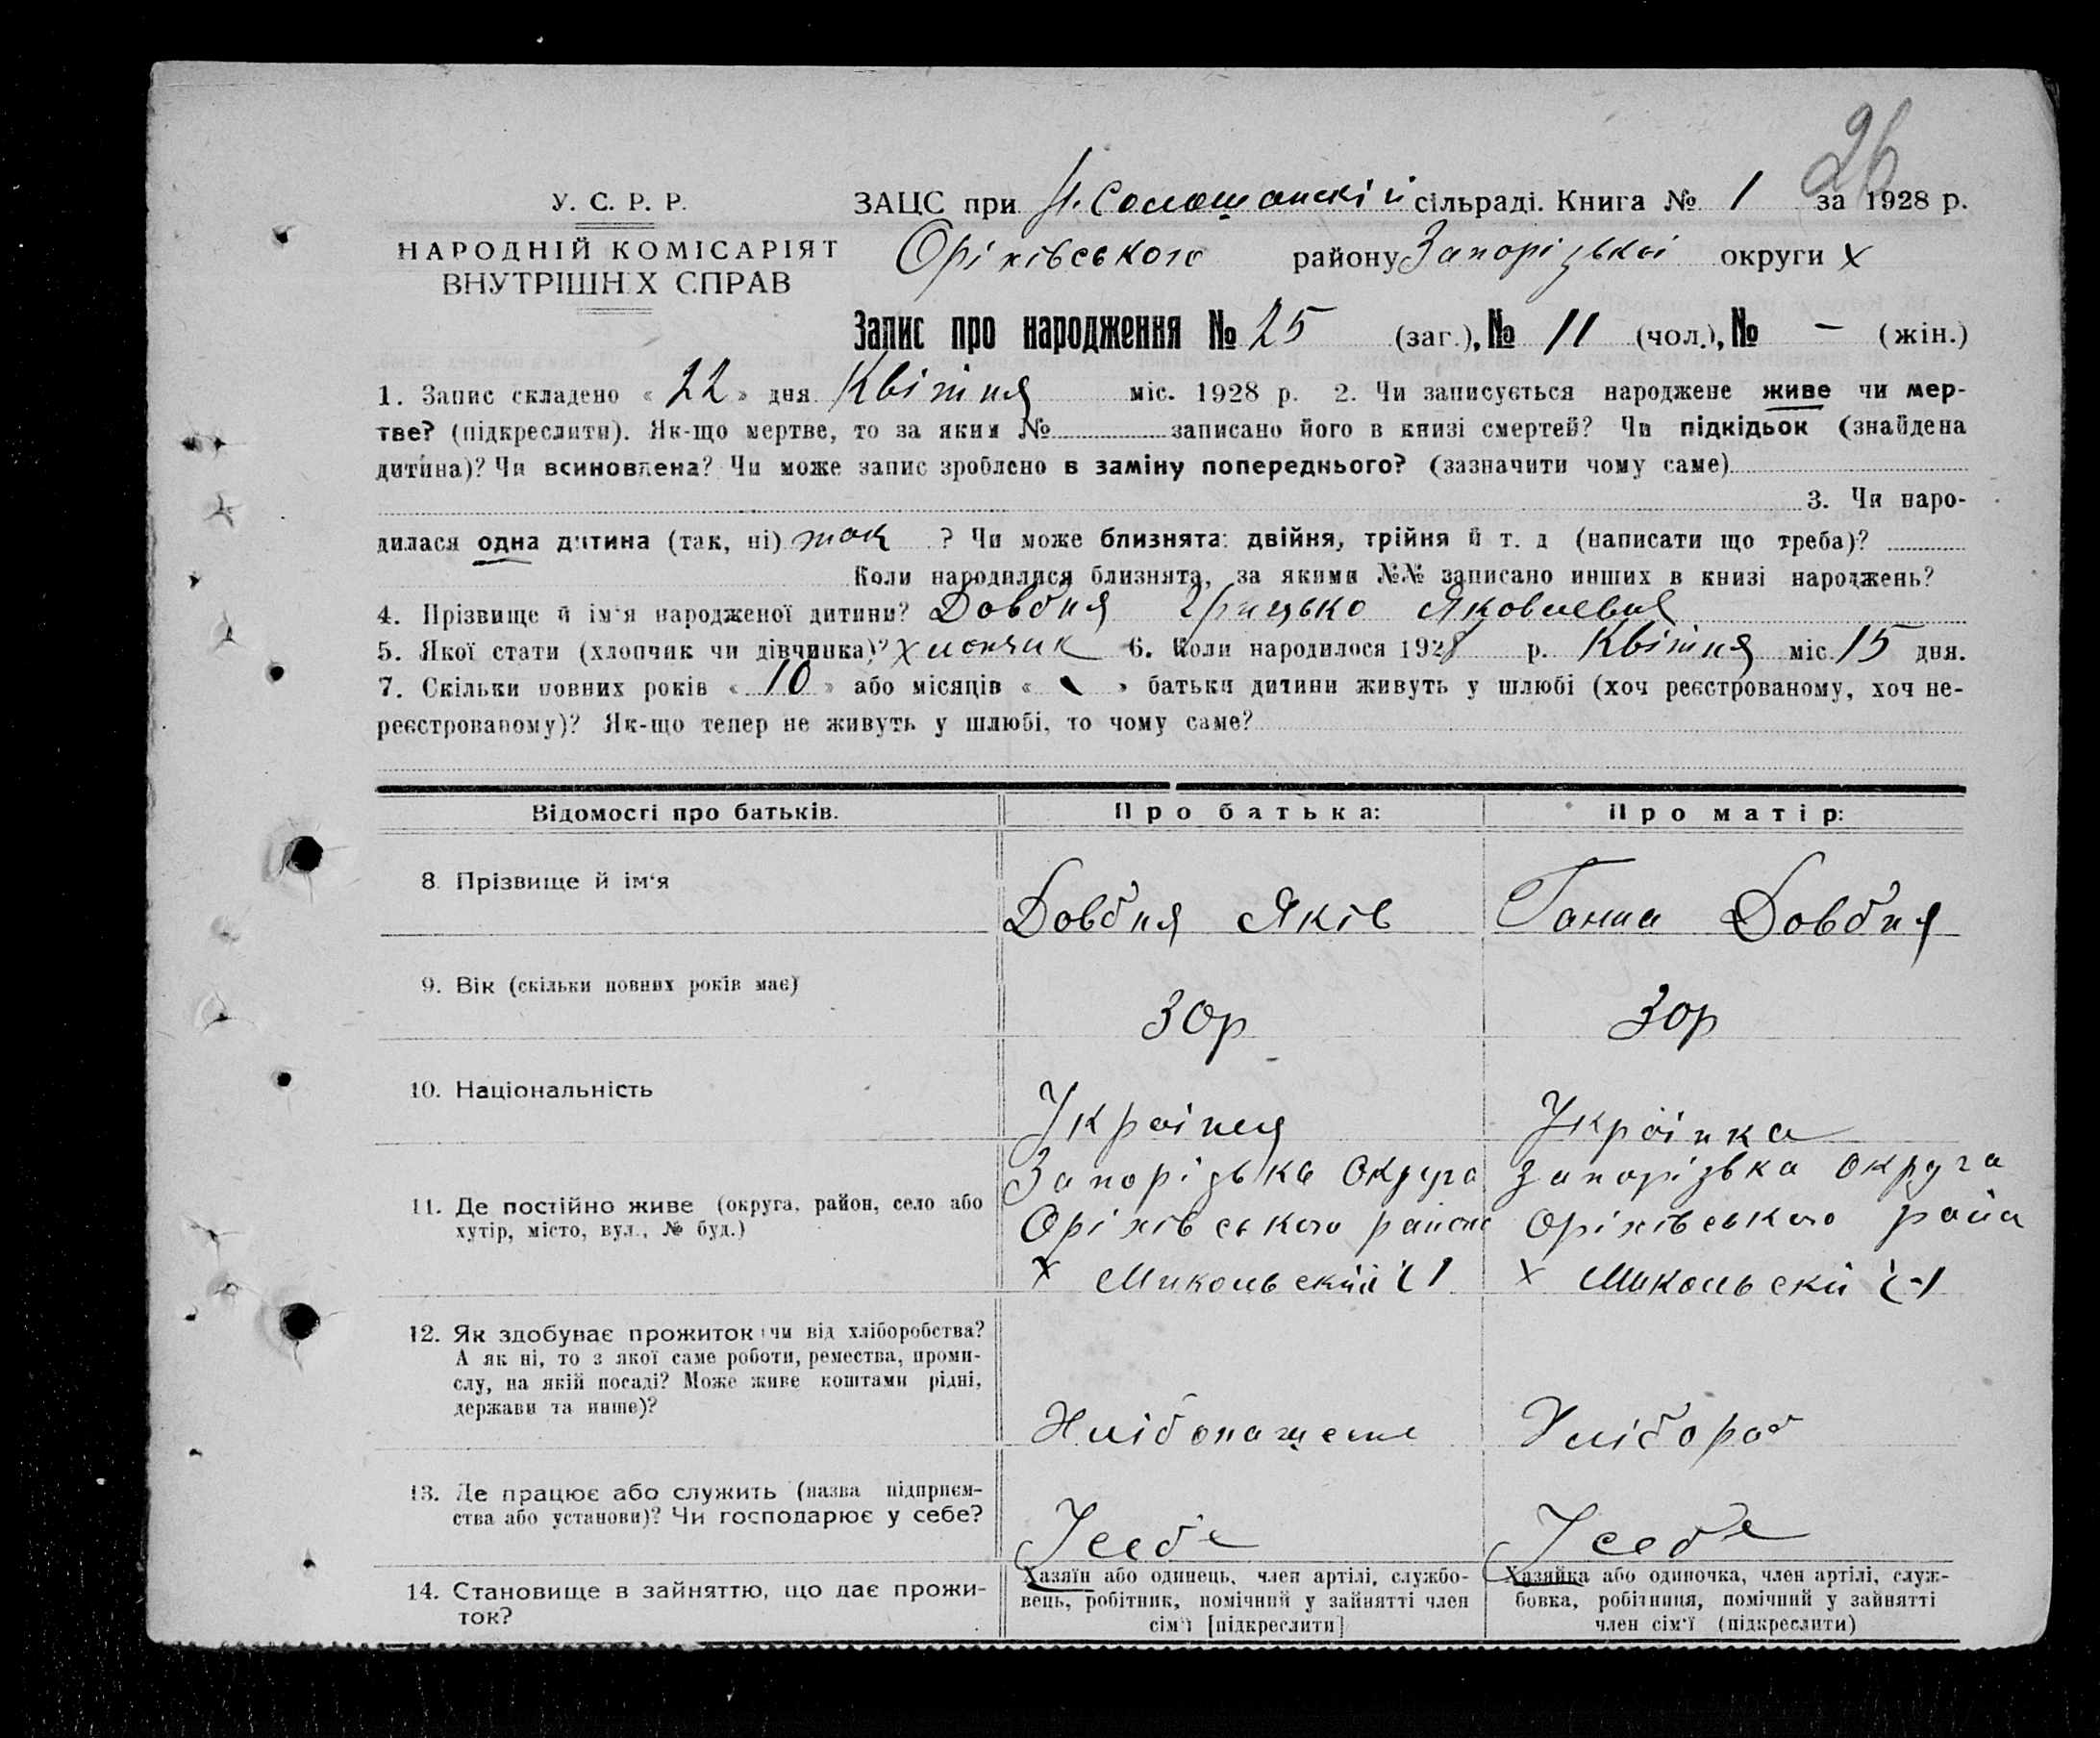 26
У. С. Р. Р.
НАРОДНІЙ КОМІСАРІЯТ
ВНУТРІШНІХ СПРАВ
ЗАЦС при сільраді. Книга № 1 за 1928 р.
Оріхівського району Запорізької округи х
Запис про народження № 25 (заг.), № 11 (чол.), № – (жін.)
1. Запис складено « 22 » дня Квітня міс. 1928 р. 2. Чи записується народжене живе чи мер-
тве? (підкреслити). Як-що мертве, то за яким № записано його в книзі смертей? Чи підкідьок (знайдена
дитина)? Чи всиновлена? Чи може запис зроблено в заміну попереднього? (зазначити чому саме)
3. Чи наро-
дилася одна дитина (так, ні) так ? Чи може близнята: двійня, трійня й т. д (написати що треба)?
Коли народилися близнята, за якими №№ записано инших в книзі народжень?
4. Прізвище й ім'я народженої дитини? Довбня Грицько Яковлевич
5. Якої стати (хлопчик чи дівчинка)? хлопчик 6. Коли народилося 1928 р. Квітня міс. 15 дня.
7. Скільки повних років « 10 » або місяців « » батьки дитини живуть у шлюбі (хоч реєстрованому, хоч не-
реєстрованому)? Як-що тепер не живуть у шлюбі, то чому саме?
Відомості про батьків. Про батька: Про матір:
8. Прізвище й ім'я
Довбня Яків Ганна Довбня
9. Вік (скільки повних років має)
30р 30р
10. Національність
Українец Українка
11. Де постійно живе (округа, район, село або
хутір, місто, вул., № буд.)
Запорізька Округа Запорізька округа
Оріхівського району Оріхівського райо
х Микольский х Микольский
12. Як здобуває прожиток (чи від хліборобства?
А як ні, то з якої саме роботи, ремества, проми-
слу, на якій посаді? Може живе коштами рідні,
держави та инше)?
Хлібороб
13. Де працює або служить (назва підприєм-
ства або установи)? Чи господарює у себе?
У себе У себе
14. Становище в зайняттю, що дає прожи-
ток?
Хазяїн або одинець, член артілі, службо-
вець, робітник, помічний у зайнятті член
сім'ї [підкреслити]
Хазяйка або одиночка, член артілі, служ-
бовка, робітниця, помічний у зайнятті
член сім'ї (підкреслити)